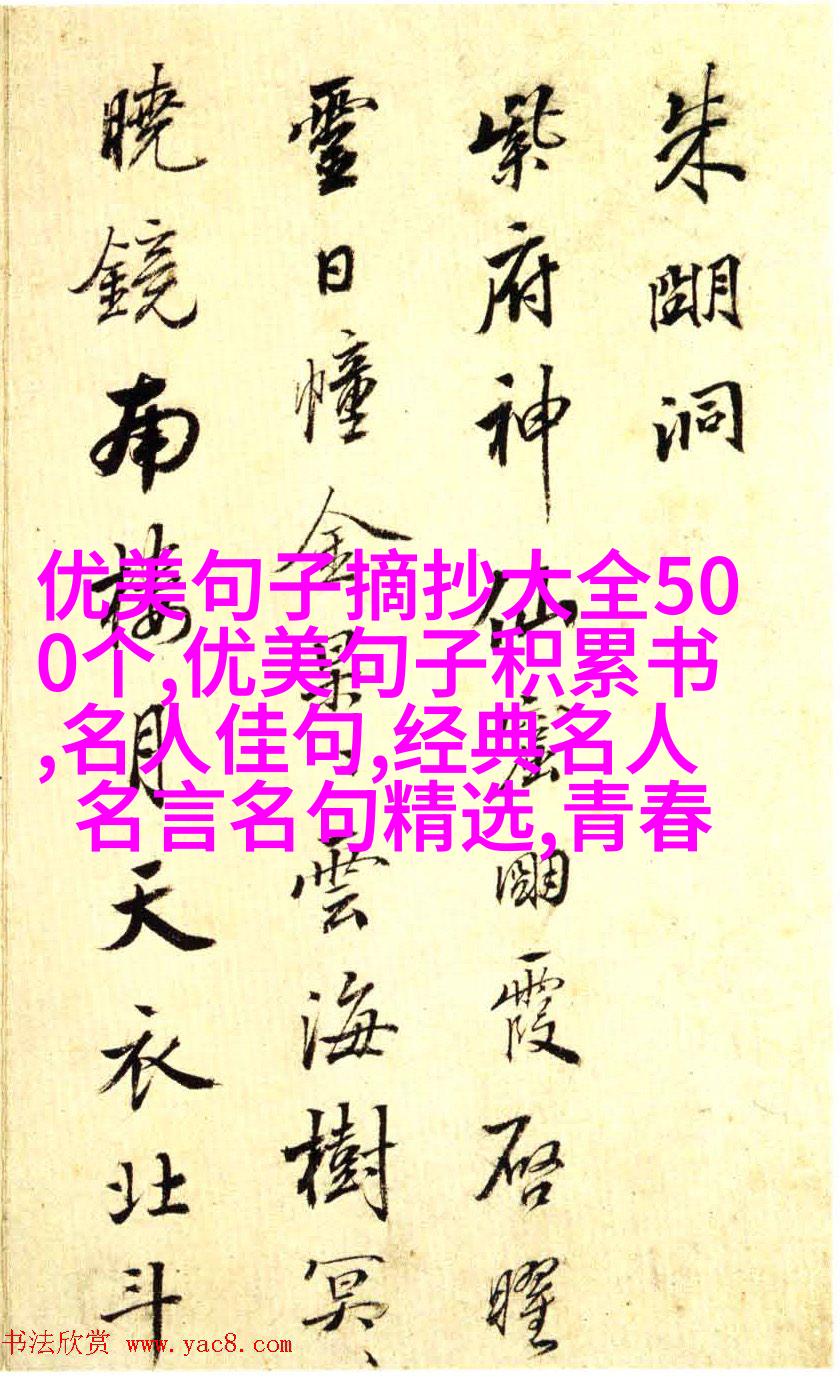 朱朙洞
紫府神仙窟朙霞启曜
靈日幢金景雲海樹冥、
曉鏡南樓月天衣北斗
优美句子摘抄大全50
0个,优美句子积累书
,名人佳句,经典名人
名言名句精选,青春
书法欣赏 www.yac8.com